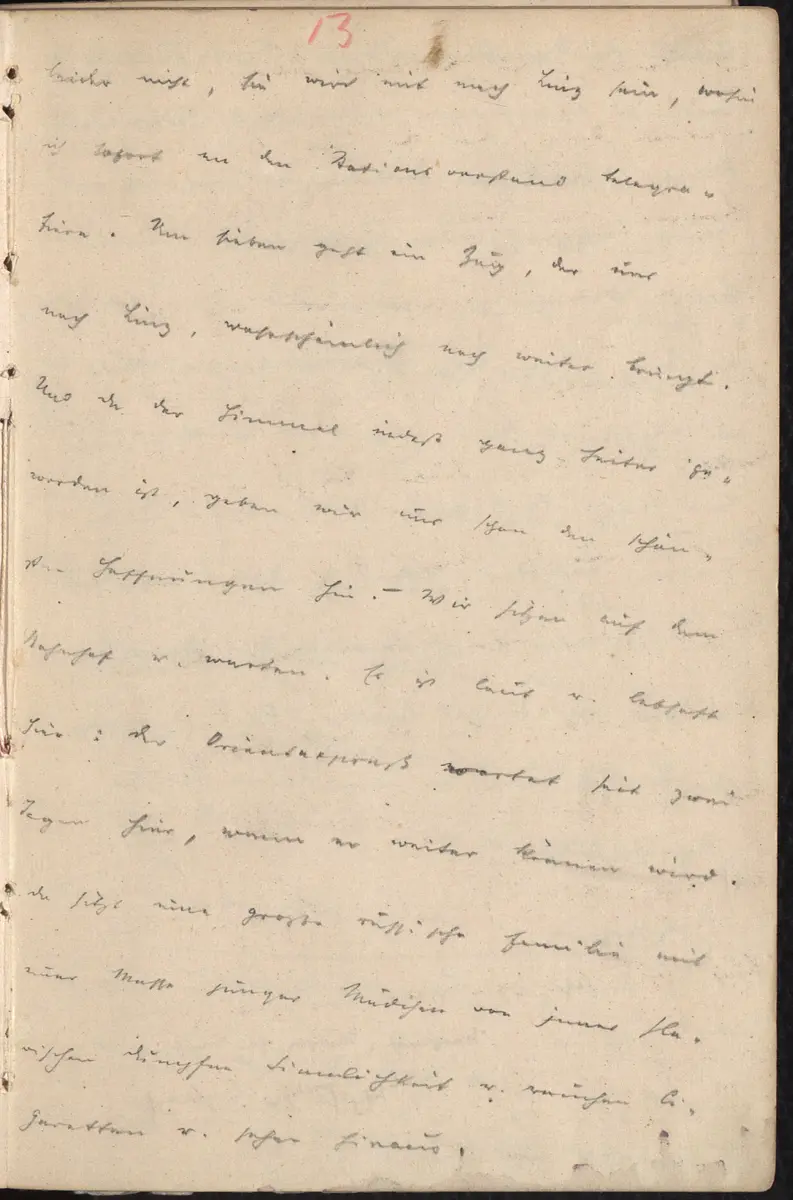 13
leider nicht, sie wird mit nach Linz sein, wohin
ich sofort an den Stationsvorstand telegra„
fiere. Um sieben geht ein Zug, der uns
nach Linz, wahrscheinlich noch weiter bringt.
Und da der Himmel indeß ganz heiter ge„
worden ist, geben wir uns schon den schön„
sten Hoffnungen hin. – Wir sitzen auf dem
Bahnhof u. warten. Es ist laut u. lebhaft
hier: der Orientexpreß wartet seit zwei
Tagen hier, wann er weiter können wird.
da sitzt eine große russische Familie mit
einer Masse junger Mädchen von jener sla„
vischen dumpfen Sinnlichkeit u. rauchen Ci„
garetten u. sehen hinaus.